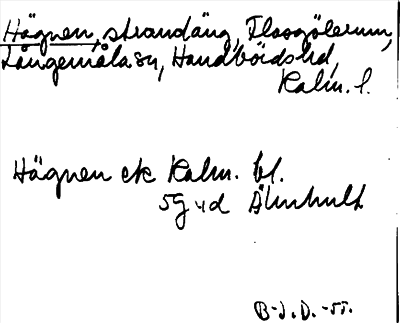 Hägnen, strandäng, Flasgölerum,
Långemåla sn, Handbörds hd,
Kalm. l.
Hägnen ek Kalm. bl.
5G vd Älmhult
B-J. D. -55.